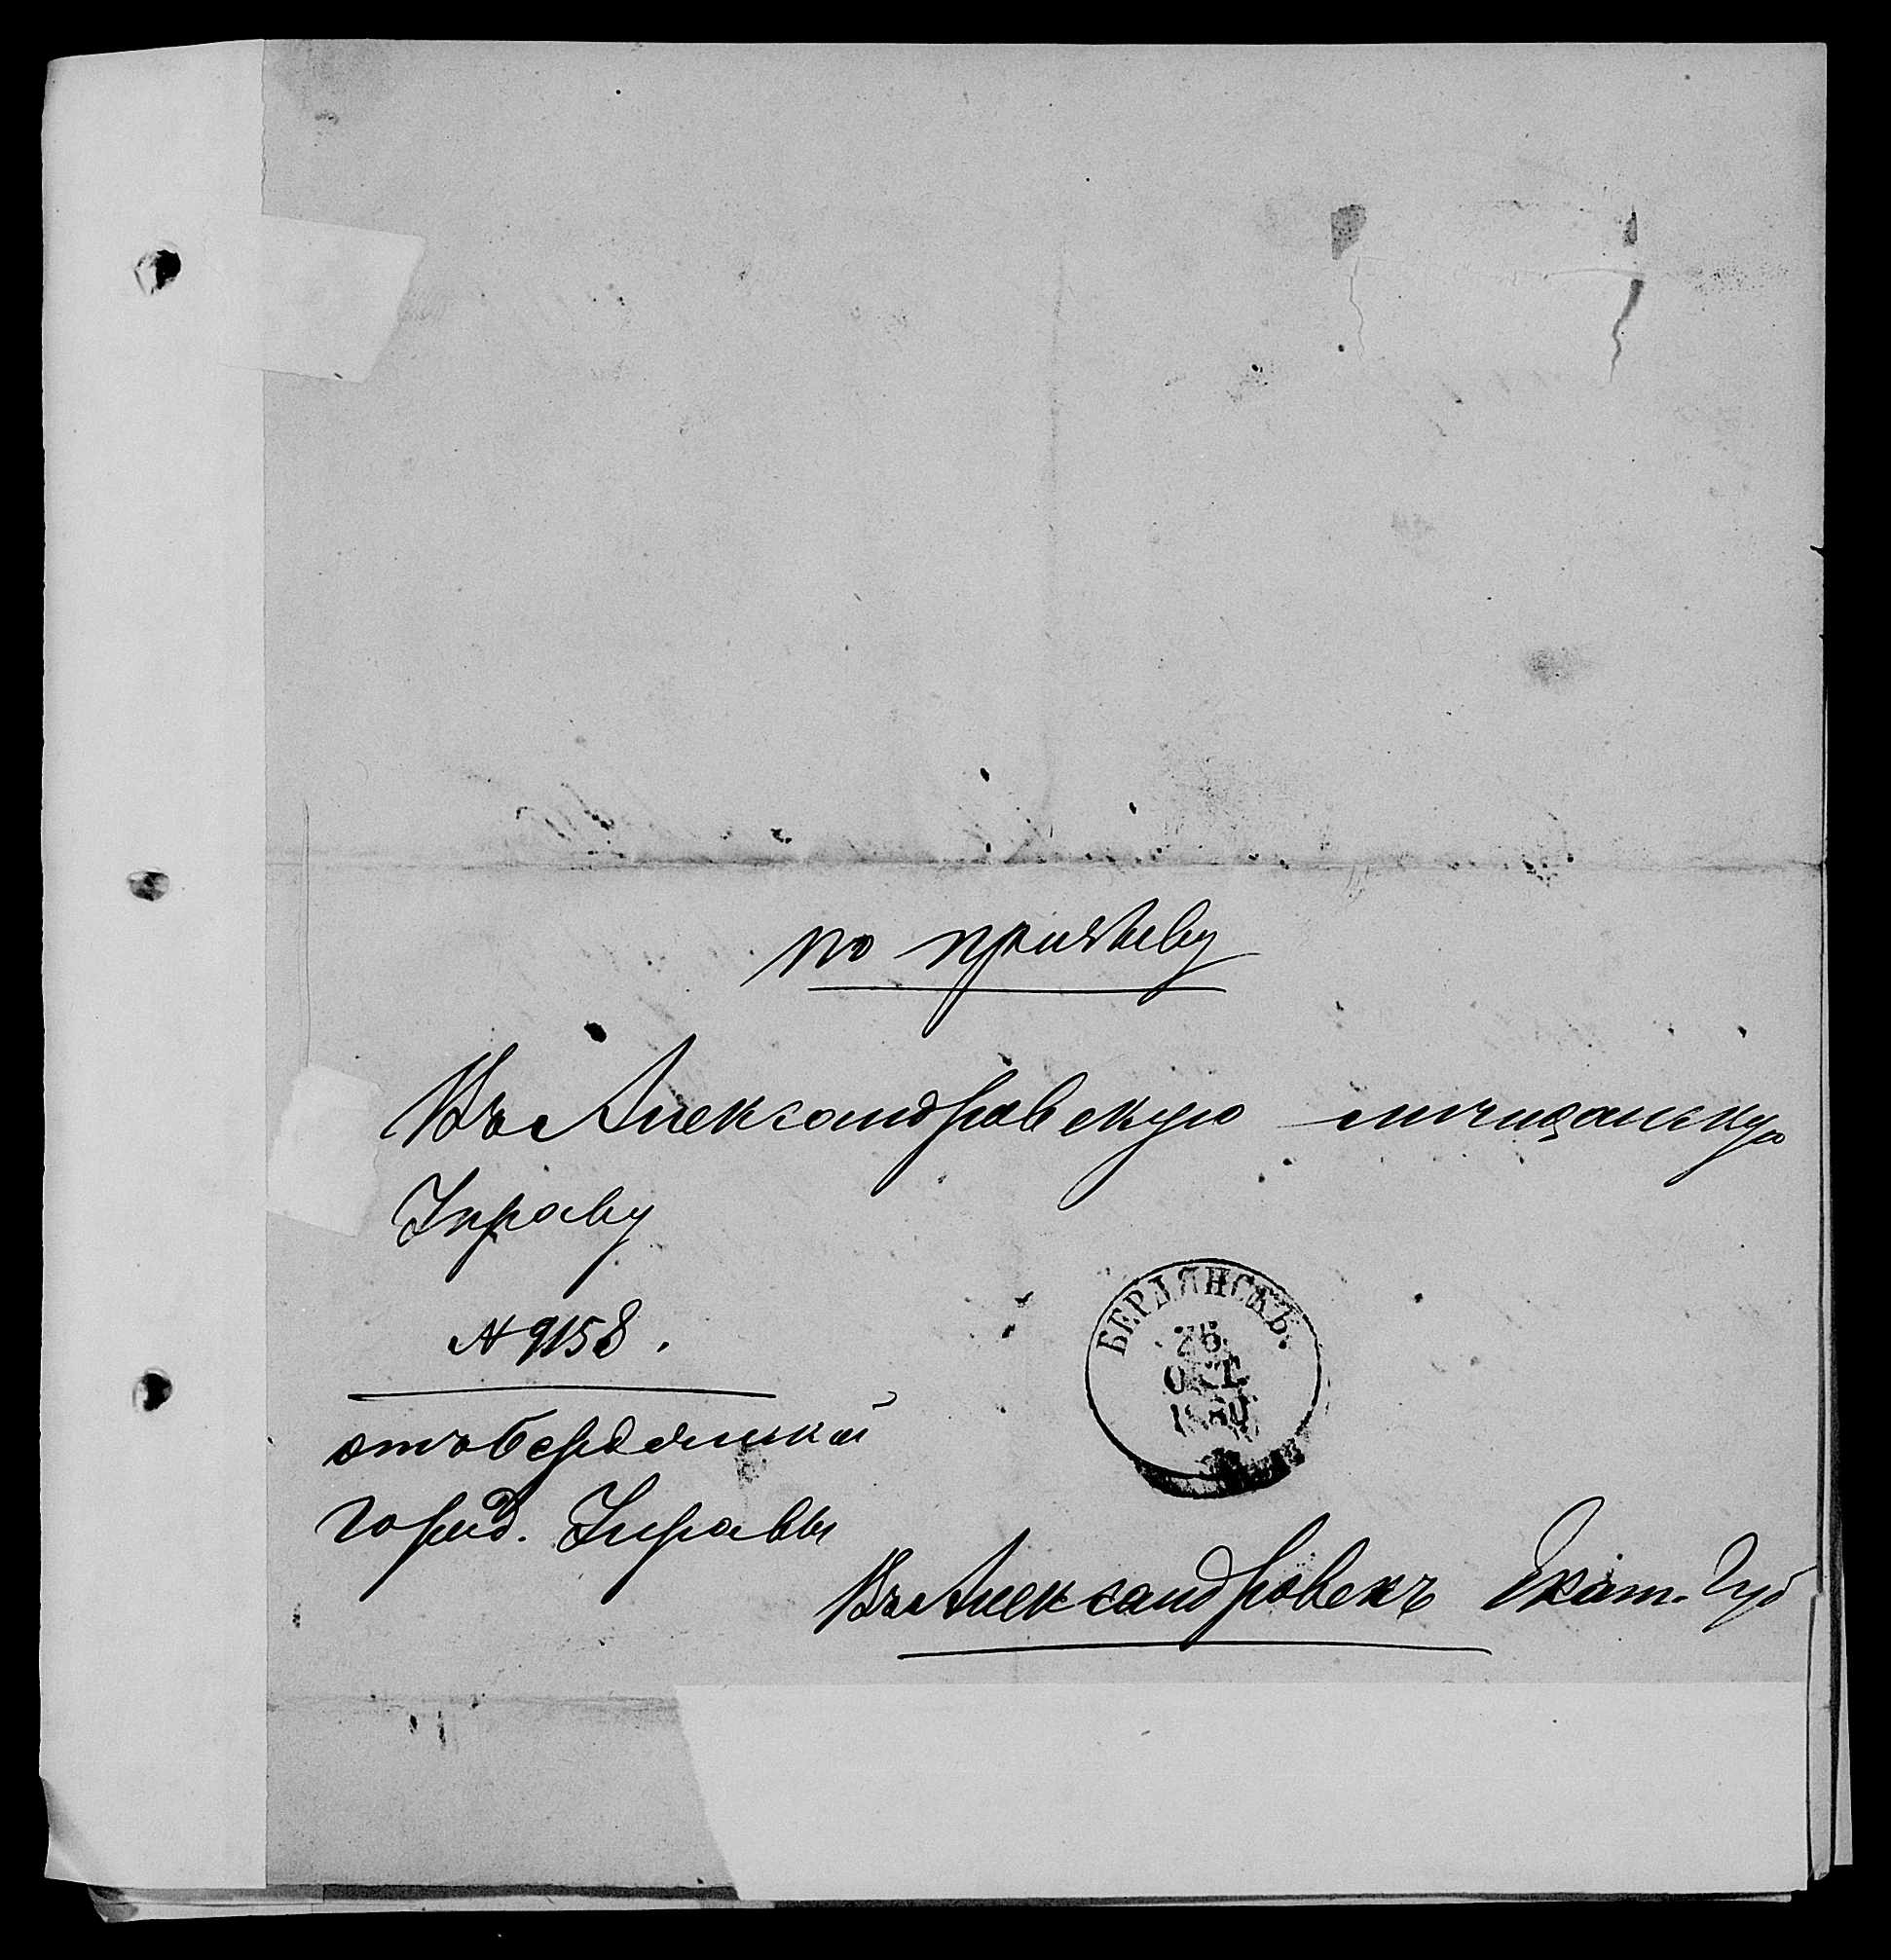 по призыву
Въ Александровскую мѣщанскую
Управу
№ 9158.
отъ Бердянской
город. Управы
БЕРДЯНСКЪ.
ОКТ.
1880
Въ Александровскъ Екат. Губ